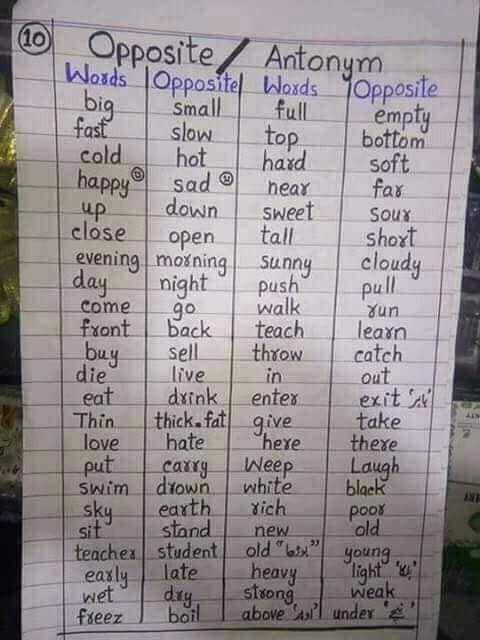 10 Opposite / Antonym
Words Opposite Words Opposite
big small full empty
fast slow top bottom
cold hot hard soft
happy sad near far
up down sweet sour
close open tall short
evening morning sunny cloudy
day night push pull
come go walk run
front back teach learn
buy sell throw catch
die live in out
eat drink enter exit
Thin thick.fat give take
love hate here there
put carry Weep Laugh
swim drown white black
sky earth rich poor
sit stand new old
teacher student old "بوڑھا" young
early late heavy light
wet dry strong weak
freez boil above 'اوپر' under 'نیچے'